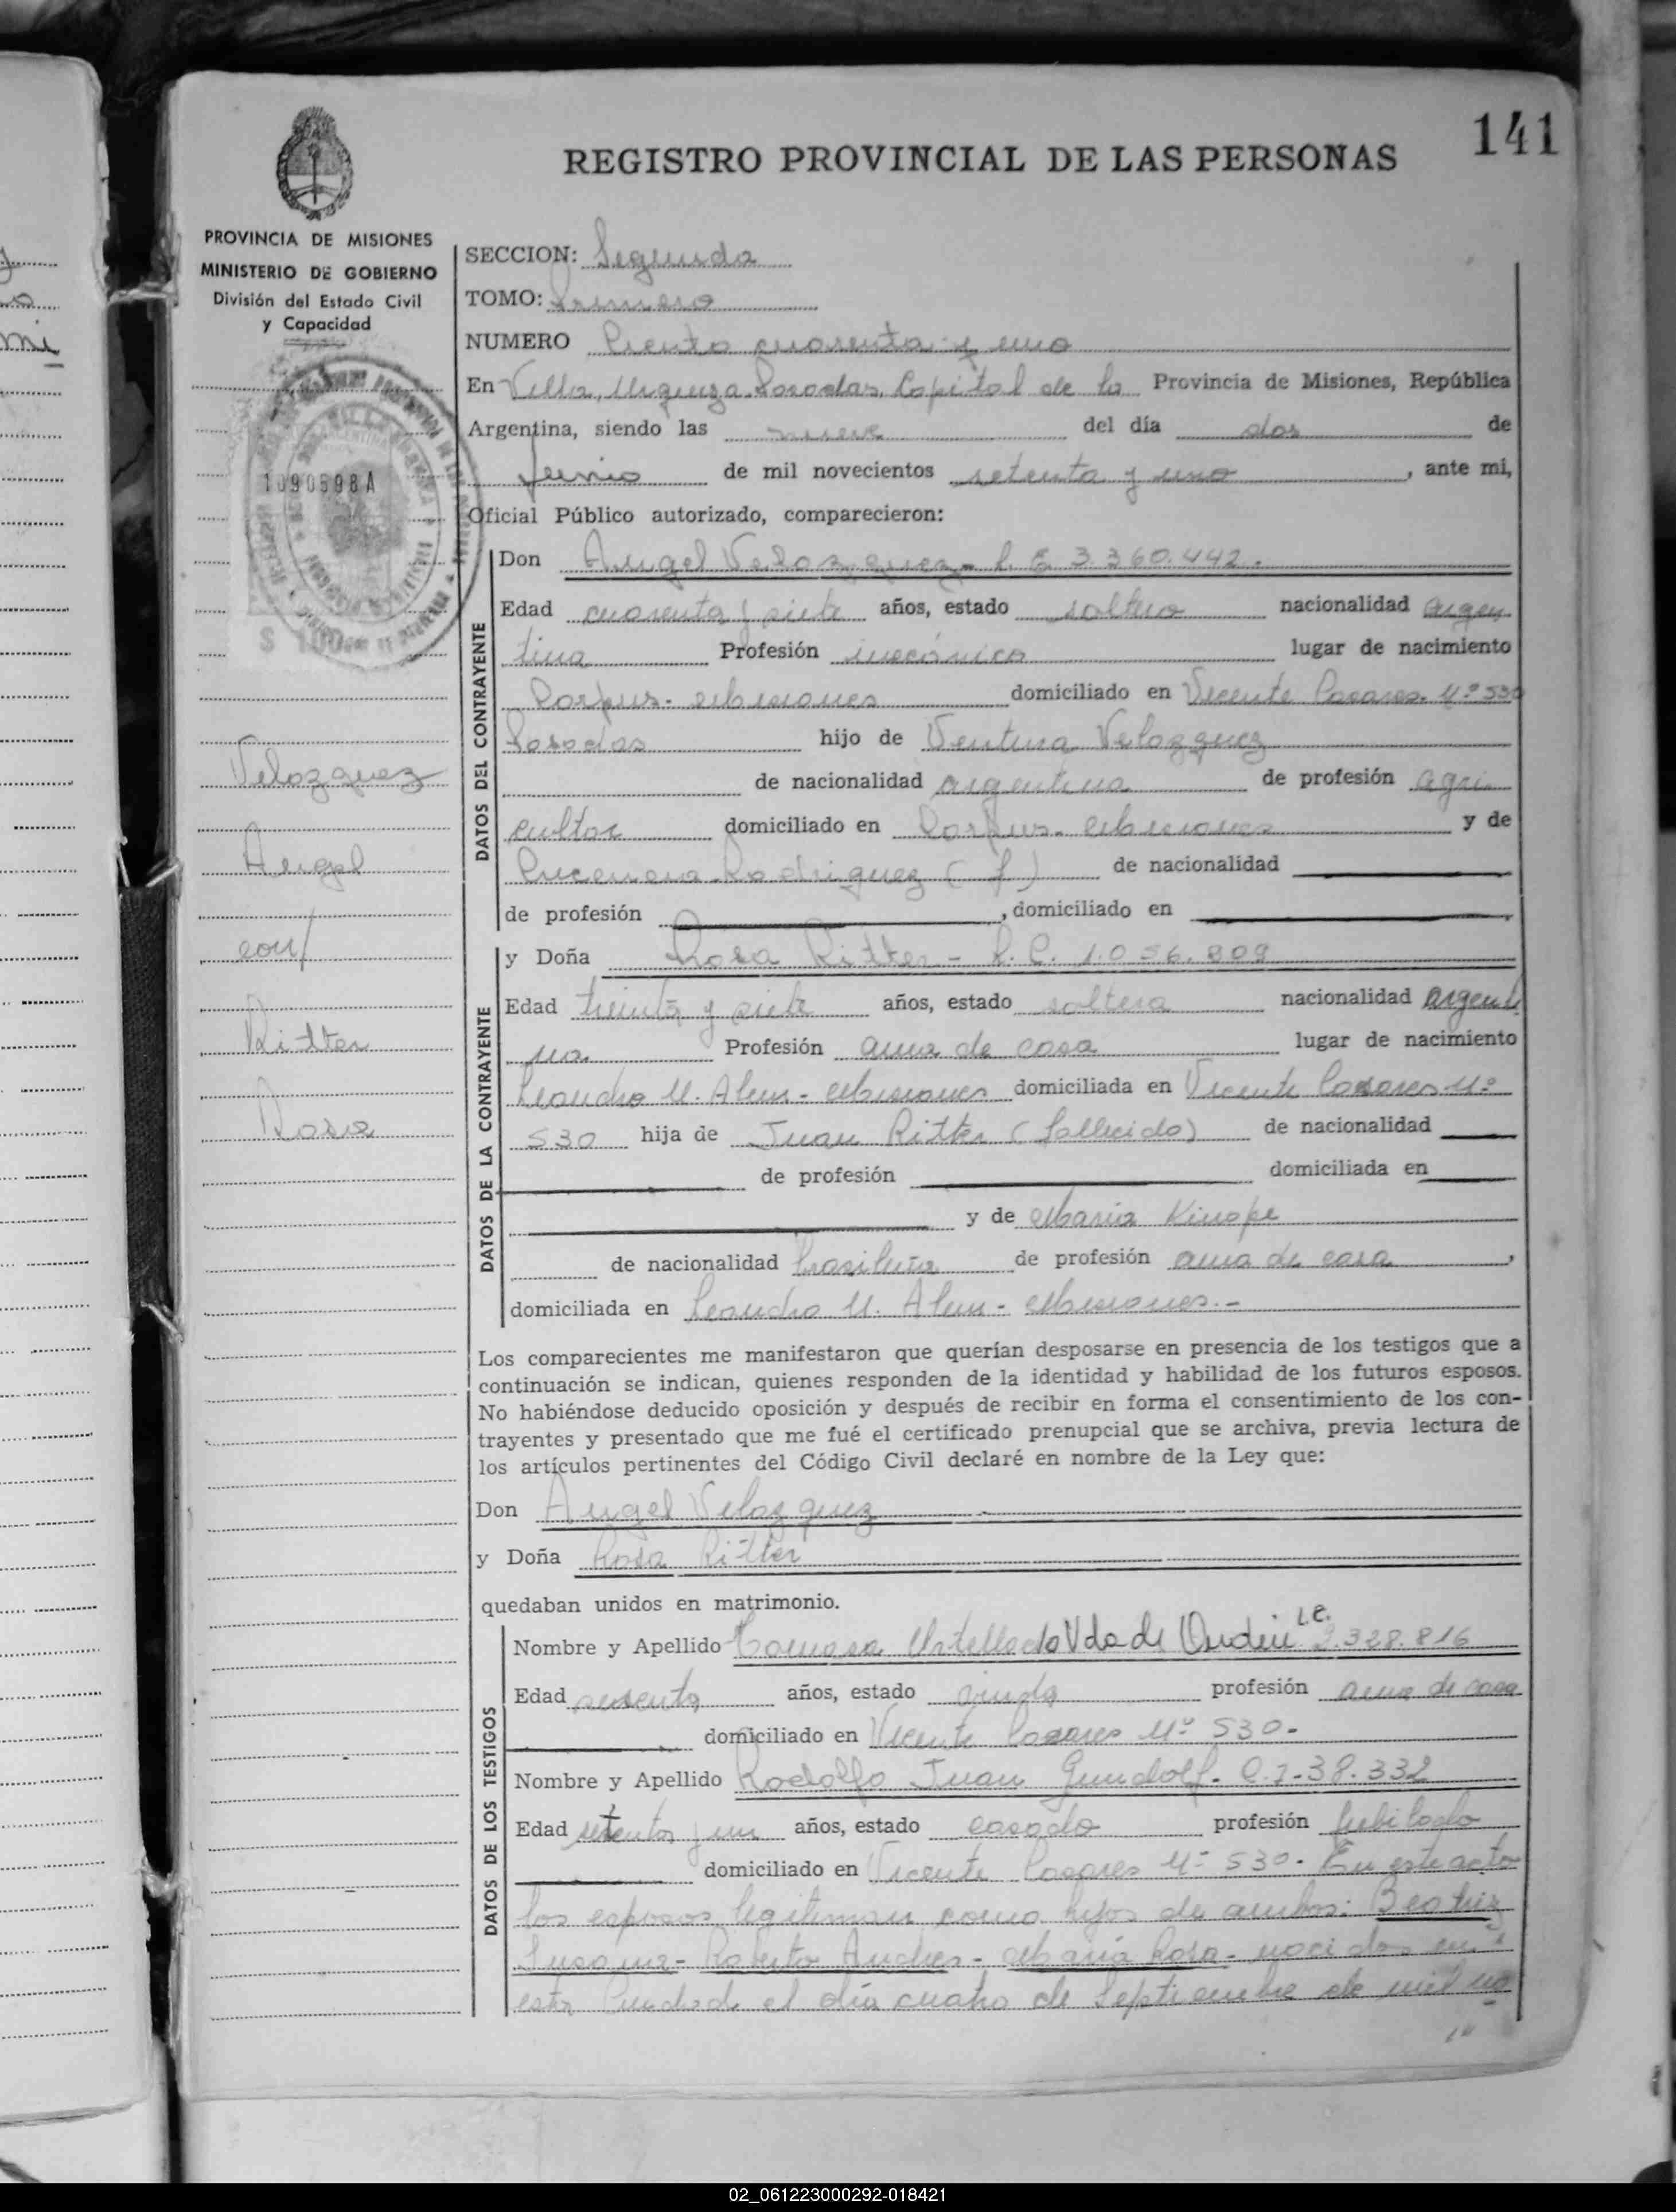 141
REGISTRO PROVINCIAL DE LAS PERSONAS
PROVINCIA DE MISIONES
MINISTERIO DE GOBIERNO
División del Estado Civil
y Capacidad
1090598A
SECCION: Segunda
TOMO: Primero
NUMERO Ciento cuarenta y uno
En Villa Urquiza Posadas, Capital de la Provincia de Misiones, República
Argentina, siendo las nueve del día dos de
Junio de mil novecientos setenta y uno, ante mi,
Oficial Público autorizado, comparecieron:
DATOS DEL CONTRAYENTE
Don Angel Velazquez- L. E 3.360.442.-
Edad cuarenta y siete años, estado soltero nacionalidad argen
tina Profesión mecánico lugar de nacimiento
Corpus- Misiones domiciliado en Vicente Casares Nº 530
Posadas hijo de Ventura Velazquez
de nacionalidad argentina de profesión agri
cultor domiciliado en Corpus- Misiones y de
Rodriguez (f) de nacionalidad
de profesión , domiciliado en
DATOS DE LA CONTRAYENTE
y Doña Rosa Ritter - L. C. 1.056.809
Edad treinta y siete años, estado soltera nacionalidad argenti
na Profesión ama de casa lugar de nacimiento
Leandro N. Alem - Misiones domiciliada en Vicente Casares Nº
530 hija de Juan Ritter (fallecido) de nacionalidad
de profesión domiciliada en
y de Maria
de nacionalidad brasileña de profesión ama de casa ,
domiciliada en Leandro N. Alem - Misiones.-
Los comparecientes me manifestaron que querían desposarse en presencia de los testigos que a
continuación se indican, quienes responden de la identidad y habilidad de los futuros esposos.
No habiéndose deducido oposición y después de recibir en forma el consentimiento de los con-
trayentes y presentado que me fué el certificado prenupcial que se archiva, previa lectura de
los artículos pertinentes del Código Civil declaré en nombre de la Ley que:
Don Angel Velazquez
y Doña Rosa Ritter
quedaban unidos en matrimonio.
DATOS DE LOS TESTIGOS
Nombre y Apellido Tomasa Vda de L.C. 2.328.816
Edad sesenta años, estado viuda profesión ama de casa
domiciliado en Vicente Casares Nº 530-
Nombre y Apellido Rodolfo Juan Gundolf- C.I-38.332
Edad setenta y un años, estado casado profesión jubilado
domiciliado en Vicente Casares Nº 530- En este acto
los esposos legitiman como hijos de ambos: Beatriz
Susana- Roberto Andres- Maria Rosa- nacidos en
esta Ciudad, el día cuatro de Septiembre de mil no
Velazquez
Angel
con/
Ritter
Rosa
02_061223000292-018421